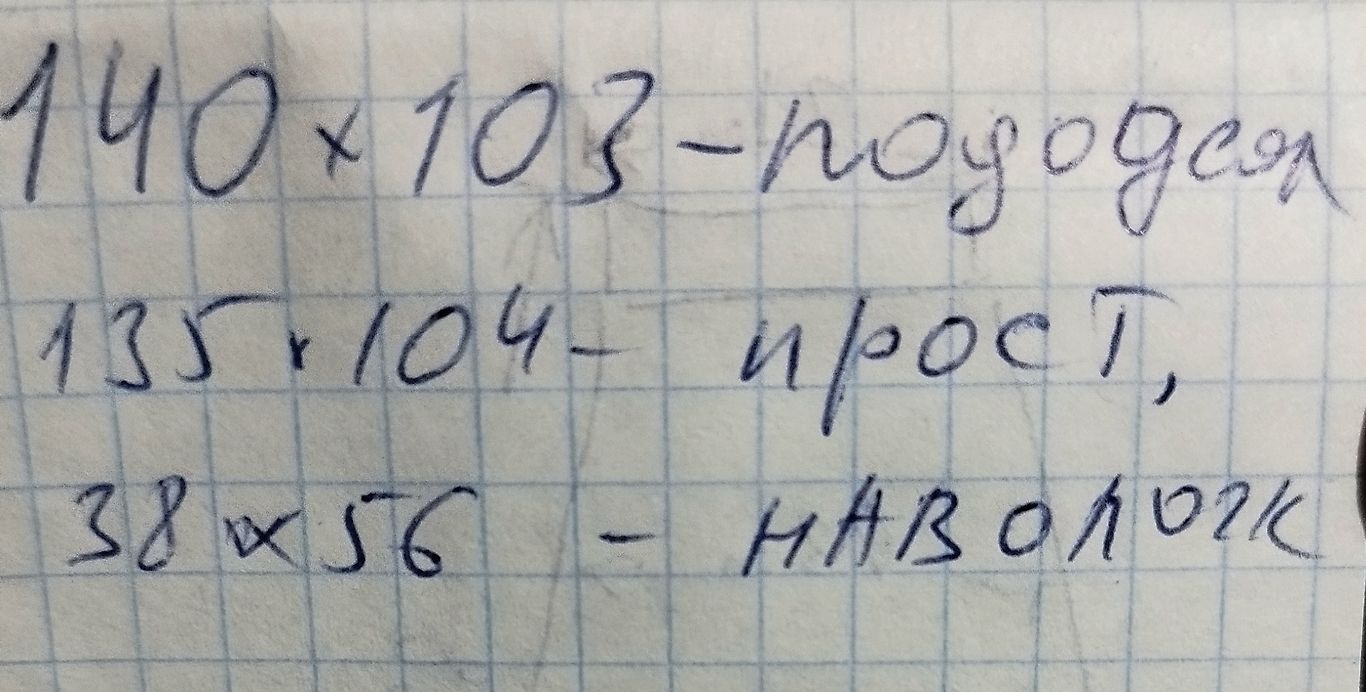 140 x 103 - пододеял
135 x 104 - прост,
38 x 56 - наволочк